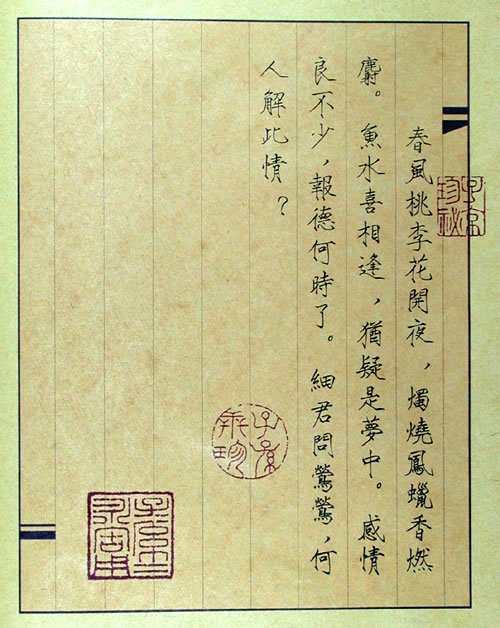 春風桃李花開夜，燭燒鳳蠟香燃
麝。魚水喜相逢，猶疑是夢中。感情
良不少，報德何時了。細君問鶯鶯，何
人解此情？
子京珍秘